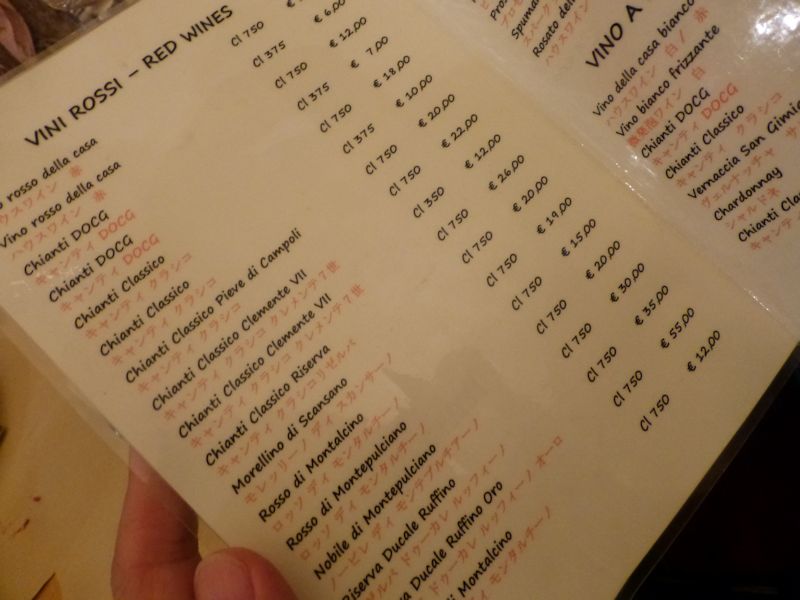 VINI ROSSI – RED WINES
rosso della casa Cl 750 €
ハウスワイン 赤
Vino rosso della casa Cl 375 € 6,00
ハウスワイン 赤
Chianti DOCG Cl 750 € 12,00
キャンティ DOCG
Chianti DOCG Cl 375 € 7,00
キャンティ DOCG
Chianti Classico Cl 750 € 18,00
キャンティ クラシコ
Chianti Classico Cl 375 € 10,00
キャンティ クラシコ
Chianti Classico Pieve di Campoli Cl 750 € 20,00
キャンティ クラシコ
Chianti Classico Clemente VII Cl 750 € 22,00
キャンティ クラシコ クレメンテ7世
Chianti Classico Clemente VII Cl 350 € 12,00
キャンティ クラシコ クレメンテ7世
Chianti Classico Riserva Cl 750 € 26,00
キャンティ クラシコリゼルバ
Morellino di Scansano Cl 750 € 20,00
モレッリーノ ディ スカンサーノ
Rosso di Montalcino Cl 750 € 19,00
ロッソ ディ モンタルチーノ
Rosso di Montepulciano Cl 750 € 15,00
ロッソ ディ モンテプルチアーノ
Nobile di Montepulciano Cl 750 € 20,00
ノービレ ディ モンタルチーノ
Riserva Ducale Ruffino Cl 750 € 30,00
ゼルバ ドゥーカレ ルッフィーノ
Ducale Ruffino Oro Cl 750 € 35,00
ドゥーカレ ルッフィーノ オーロ
di Montalcino Cl 750 € 55,00
ディ モンタルチーノ
Cl 750 € 12,00
Rosato della
ハウスワイン
VINO A
Vino della casa bianco
ハウスワイン 白 / 赤
Vino bianco frizzante
微発泡ワイン 白
Chianti DOCG
キャンティ DOCG
Chianti Classico
キャンティ クラシコ
Vernaccia San Gimig
ヴェルナッチャ サ
Chardonnay
シャルドネ
Chianti Clas
キャンティ